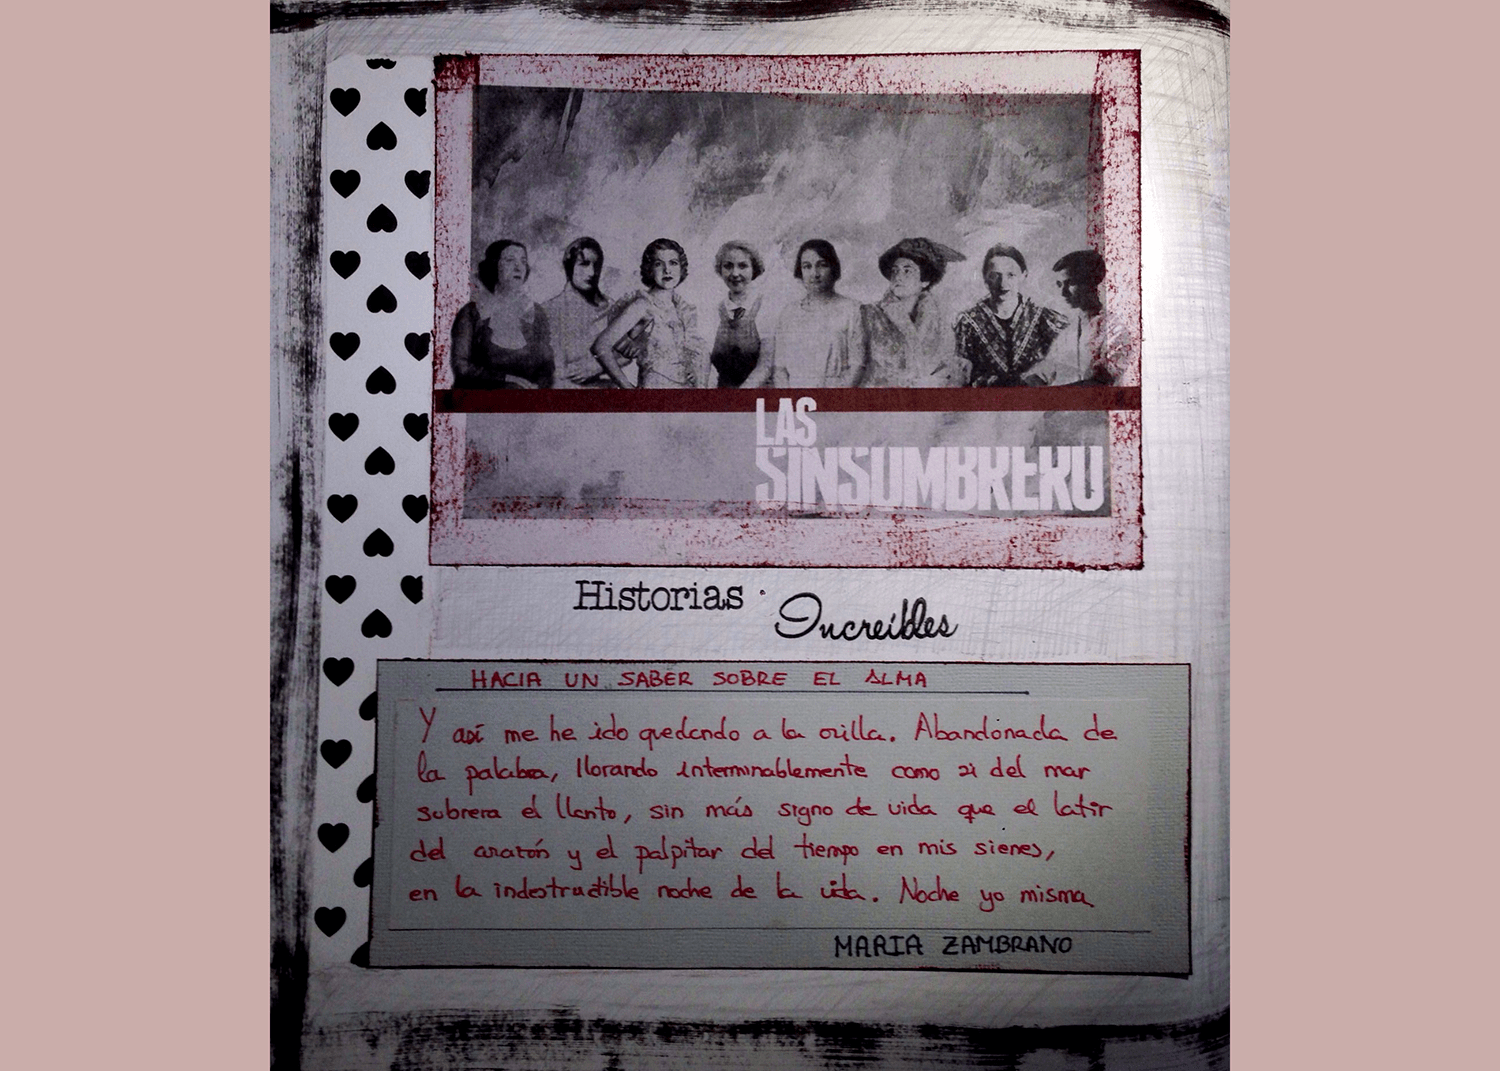 LAS
SINSOMBRERO
Historias
Increíbles
HACIA UN SABER SOBRE EL ALMA
Y así me he ido quedando a la orilla. Abandonada de
la palabra, llorando interminablemente como si del mar
subrera el llanto, sin más signo de vida que el latir
del corazón y el palpitar del tiempo en mis sienes,
en la indestructible noche de la vida. Noche yo misma.
MARIA ZAMBRANO